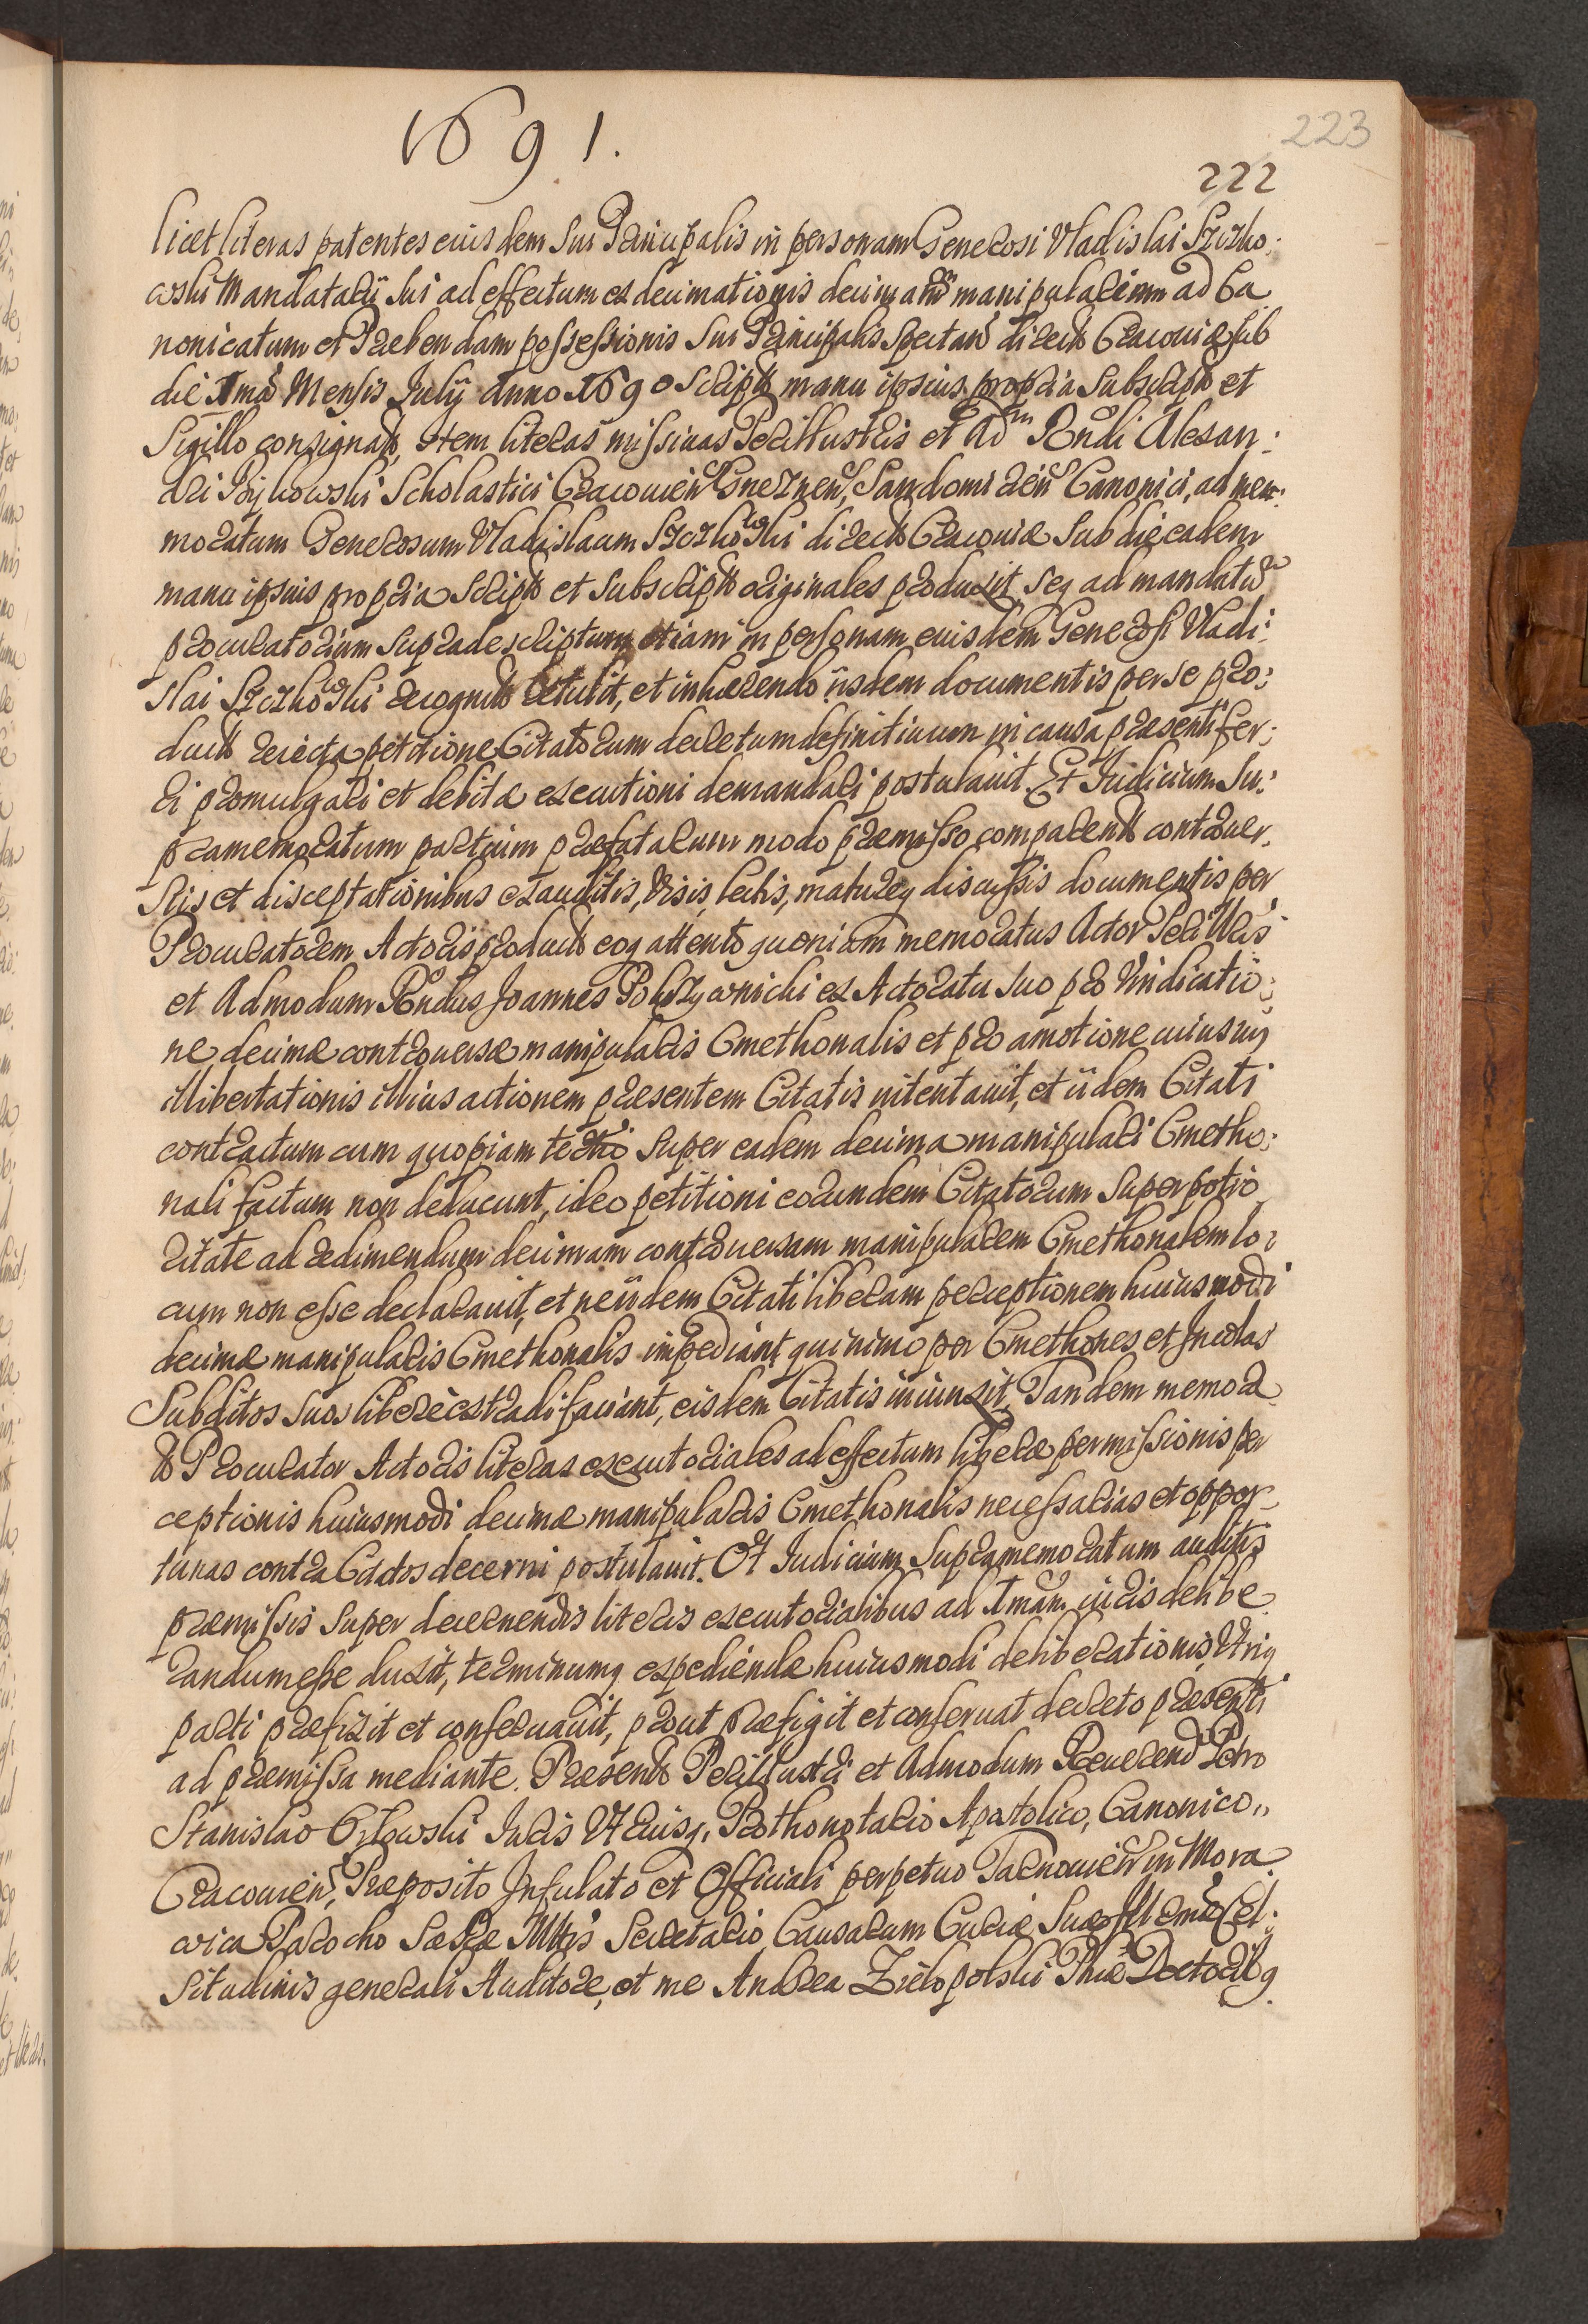 1691.
223
222
licet literas patentes eiusdem sui Principalis in personam Generosi Vladislai Szczko:
wski Mandatarij sui ad effectum exdecimationis decimarũ manipularium ad Ca
nonicatum et Praebendam possessionis sui Principalis spectanỡ direcŧŧ Cracouiae sub
die ima Mensis Julij anno 1690 scripŧŧ manu ipsius propria subscripŧŧ et
Sigillo consignaŧŧ, Item literas missiuas Perillustris et Adm Rndi Alexan:
dri Scholastici Cracouien Gneznen, Sandomirien Canonici, ad mem:
moratum Generosum Vladislaum Szczkowski direcŧŧ Cracouiae sub die eadem
manu ipsius propria scripŧŧ et subscripŧŧ originales produxit seq ad mandatũ
procuratorium supradescriptum etiam in personam eiusdem Generosi Vladi:
slai Szczkowski recogniŧŧ retulit, et inhaerendo iisdem documentis per se pro:
ducŧŧ reiecta petitione Citatorum decretum definitiuum in causa praesenti fer:
ri promulgari et debitae executioni demandari postulauit. Et Judicium Su:
pramemoratum partium praefatarum modo praemisso comparenŧŧ controuer:
siis et disceptationibus exauditis, visis, lectis, matureq discussis documentis per
Procuratorem Actoris producŧŧ eoq attento quoniam memoratus Actor Perillris
et Admodum Rndus Joannes ex Actoratu suo pro Vindicatio:
ne decimae controuersae manipularis Cmethonalis et pro amotione cuiusuis
illibertationis illius actionem praesentem Citatis intentauit, et iidem Citati
contractum cum quopiam tertio super eadem decima manipulari Cmetho:
nali factum non deducunt, ideo petitioni eorundem Citatorum super potio
ritate ad redimendum decimam controuersam manipularem Cmethonalem lo:
cum non esse declarauit, et ne iidem Citati liberam perceptionem huiusmodi
decimae manipularis Cmethonalis impediant quinimo per Cmethones et Incolas
Subditos suos libere extradi faciant, eisdem Citatis iniunxit, Tandem memora
ŧŧ Procurator Actoris literas executoriales ad effectum liberae permissionis per
ceptionis huiusmodi decimae manipularis Cmethonalis necessarias et oppor
tunas contra Citatos decerni postulauit. Et Judicium Supramemoratum auditis
praemissis super decernendis literis executorialibus ad imam iuris delibe
randum esse duxit, terminumq expediendae huiusmodi deliberationis Vtriq
parti praefixit et conseruauit, prout praefigit et conseruat decreto praesenti
ad praemissa mediante. Praesenŧŧ Perillustri et Admodum Reuerendỡ Petro
Stanislao Orłowski Juris Vtriusq. Prothonotario Apostolico, Canonico
Cracouien, Praeposito Infulato et Officiali perpetuo Tarnouien in Mora
wica Parocho Sae Rae Mttis Secretario, Causarum Curiae Suae Illmae Cel:
situdinis generali Auditore, et me Andrea Zielopolski Phiae Doctore